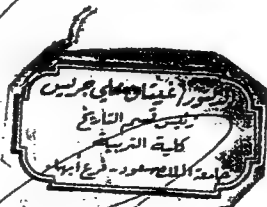 الدكتور / غيثان علي جريس
رئيس قسم التاريخ
كلية التربية
جامعة الملك سعود - فرع أبها